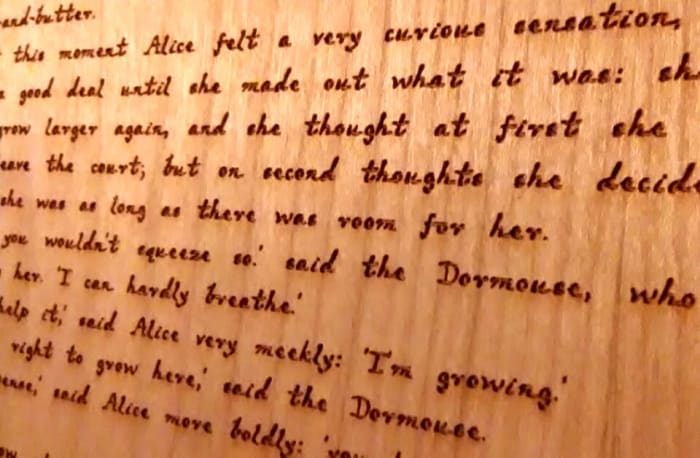 -and-butter.
this moment Alice felt a very curious sensation,
good deal until she made out what it was: sh
grow larger again, and she thought at first she
eave the court; but on second thoughts she decid
she was as long as there was room for her.
you wouldn't squeeze so.' said the Dormouse, who
her. 'I can hardly breathe.'
help it,' said Alice very meekly: 'I'm growing.'
right to grow here,' said the Dormouse.
ense,' said Alice more boldly: 'you